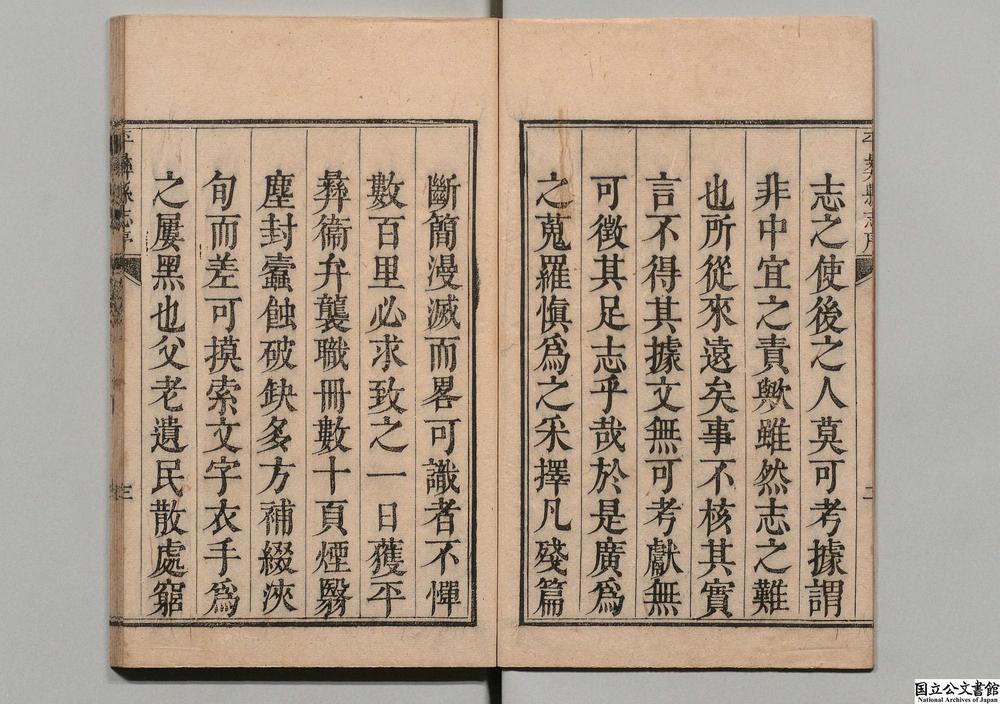 志之使後之人莫可考據謂
非中宜之責歟雖然志之難
也所從來遠矣事不核其實
言不得其據文無可考獻無
可徵其足志乎哉於是廣為
之蒐羅慎為之采擇凡殘篇
斷簡漫滅而畧可識者不憚
數百里必求致之一日獲平
彜衞弁襲職冊數十頁煙翳
塵封蠧蝕破缺多方補綴浹
旬而差可摸索文字衣手為
之屢黑也父老遺民散處窮
平彜縣志序
二
平彜縣志序
三
国立公文書館
National Archives of Japan